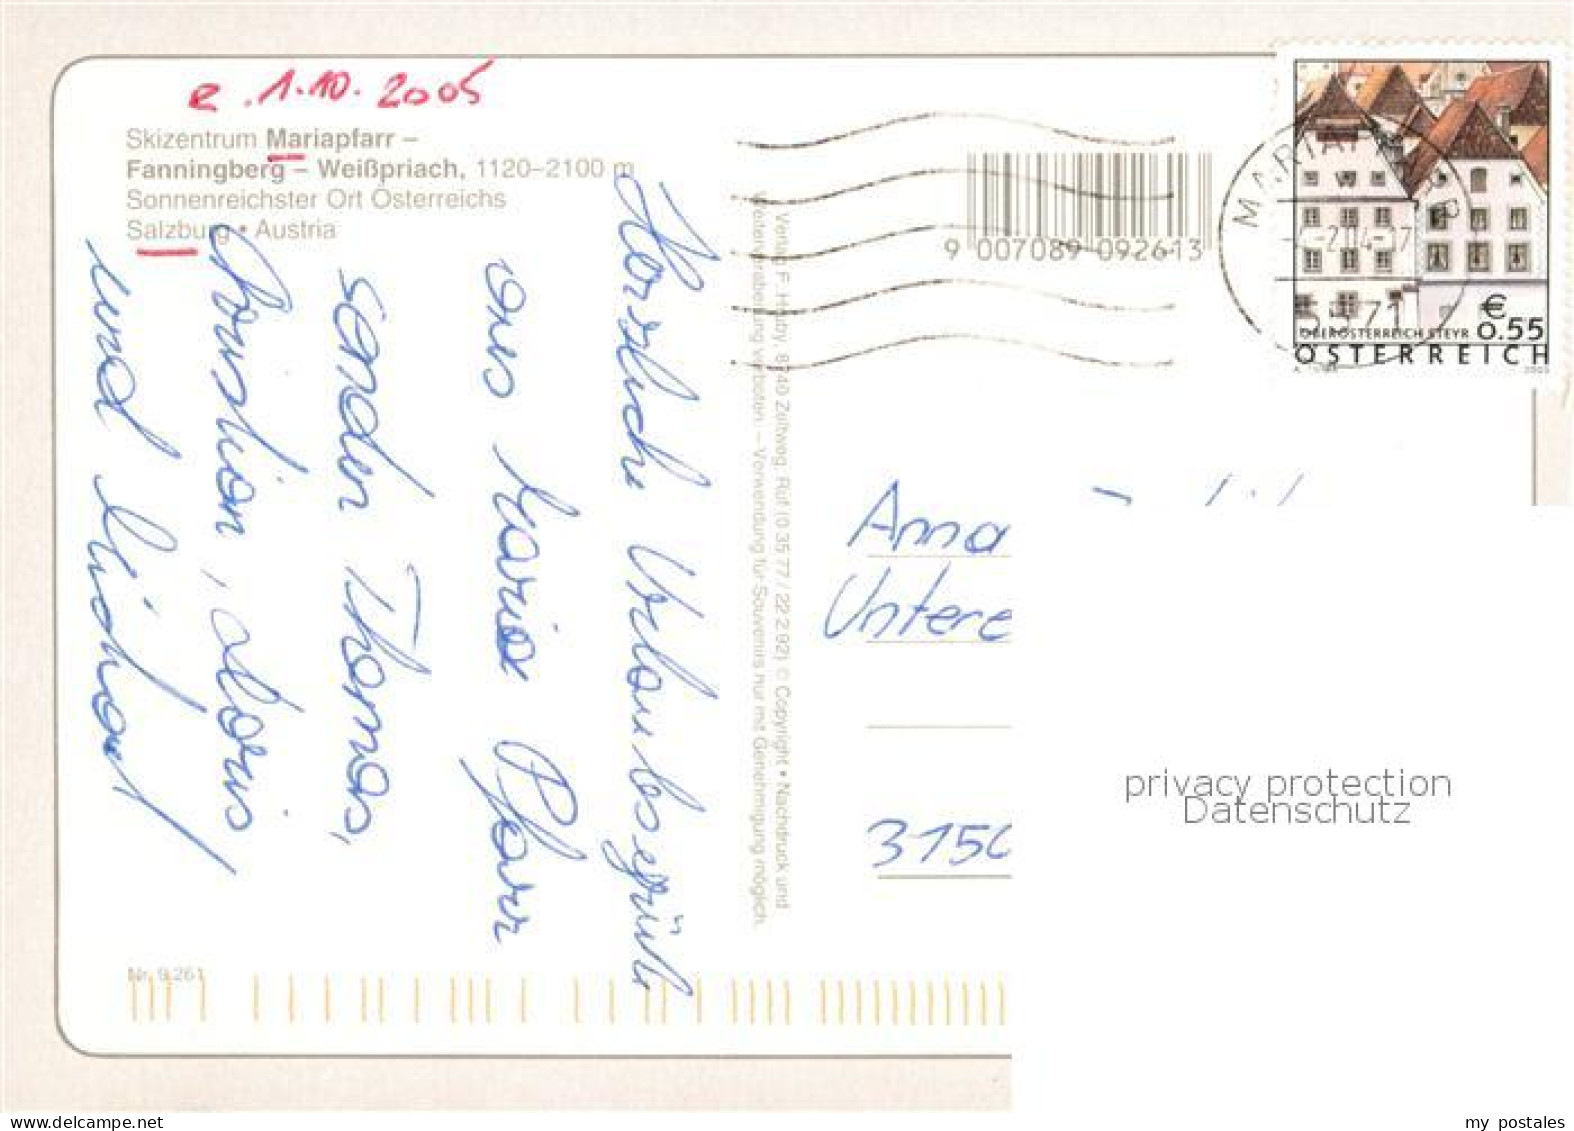 e. 1.10. 2005
Skizentrum Mariapfarr –
Fanningberg – Weißpriach, 1120–2100 m
Sonnenreichster Ort Österreichs
Salzburg • Austria
Herzliche Urlaubsgrüße
aus Maria Pfarr
senden Thomas,
Christian, Doris
und Michael
Verlag F. Huby, 8740 Zeltweg, Ruf (0 35 77 / 22 2 92) © Copyright • Nachdruck und
Weiterverarbeitung verboten. – Verwendung für Souvenirs nur mit Genehmigung möglich.
9 007089 092613
MARIAPFARR
5571
€
0.55
OBERÖSTERREICH STEYR
ÖSTERREICH
2003
Anna
Untere
3150
privacy protection
Datenschutz
Nr. 9.261
my postales